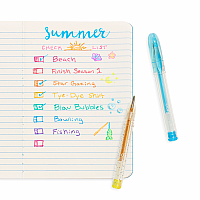 Summer
CHECK LIST
Beach
Finish Season 2
Star Gazing
Tye-Dye Shirt
Blow Bubbles
Bowling
Fishing